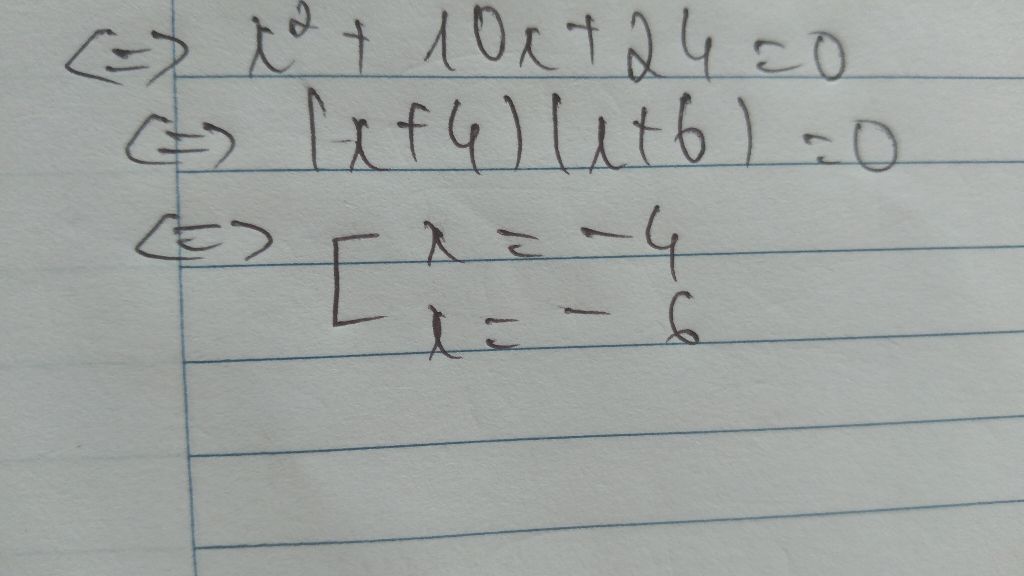 <=> x² + 10x + 24 = 0
<=> (x + 4) (x + 6) = 0
<=> [ x = - 4
x = - 6